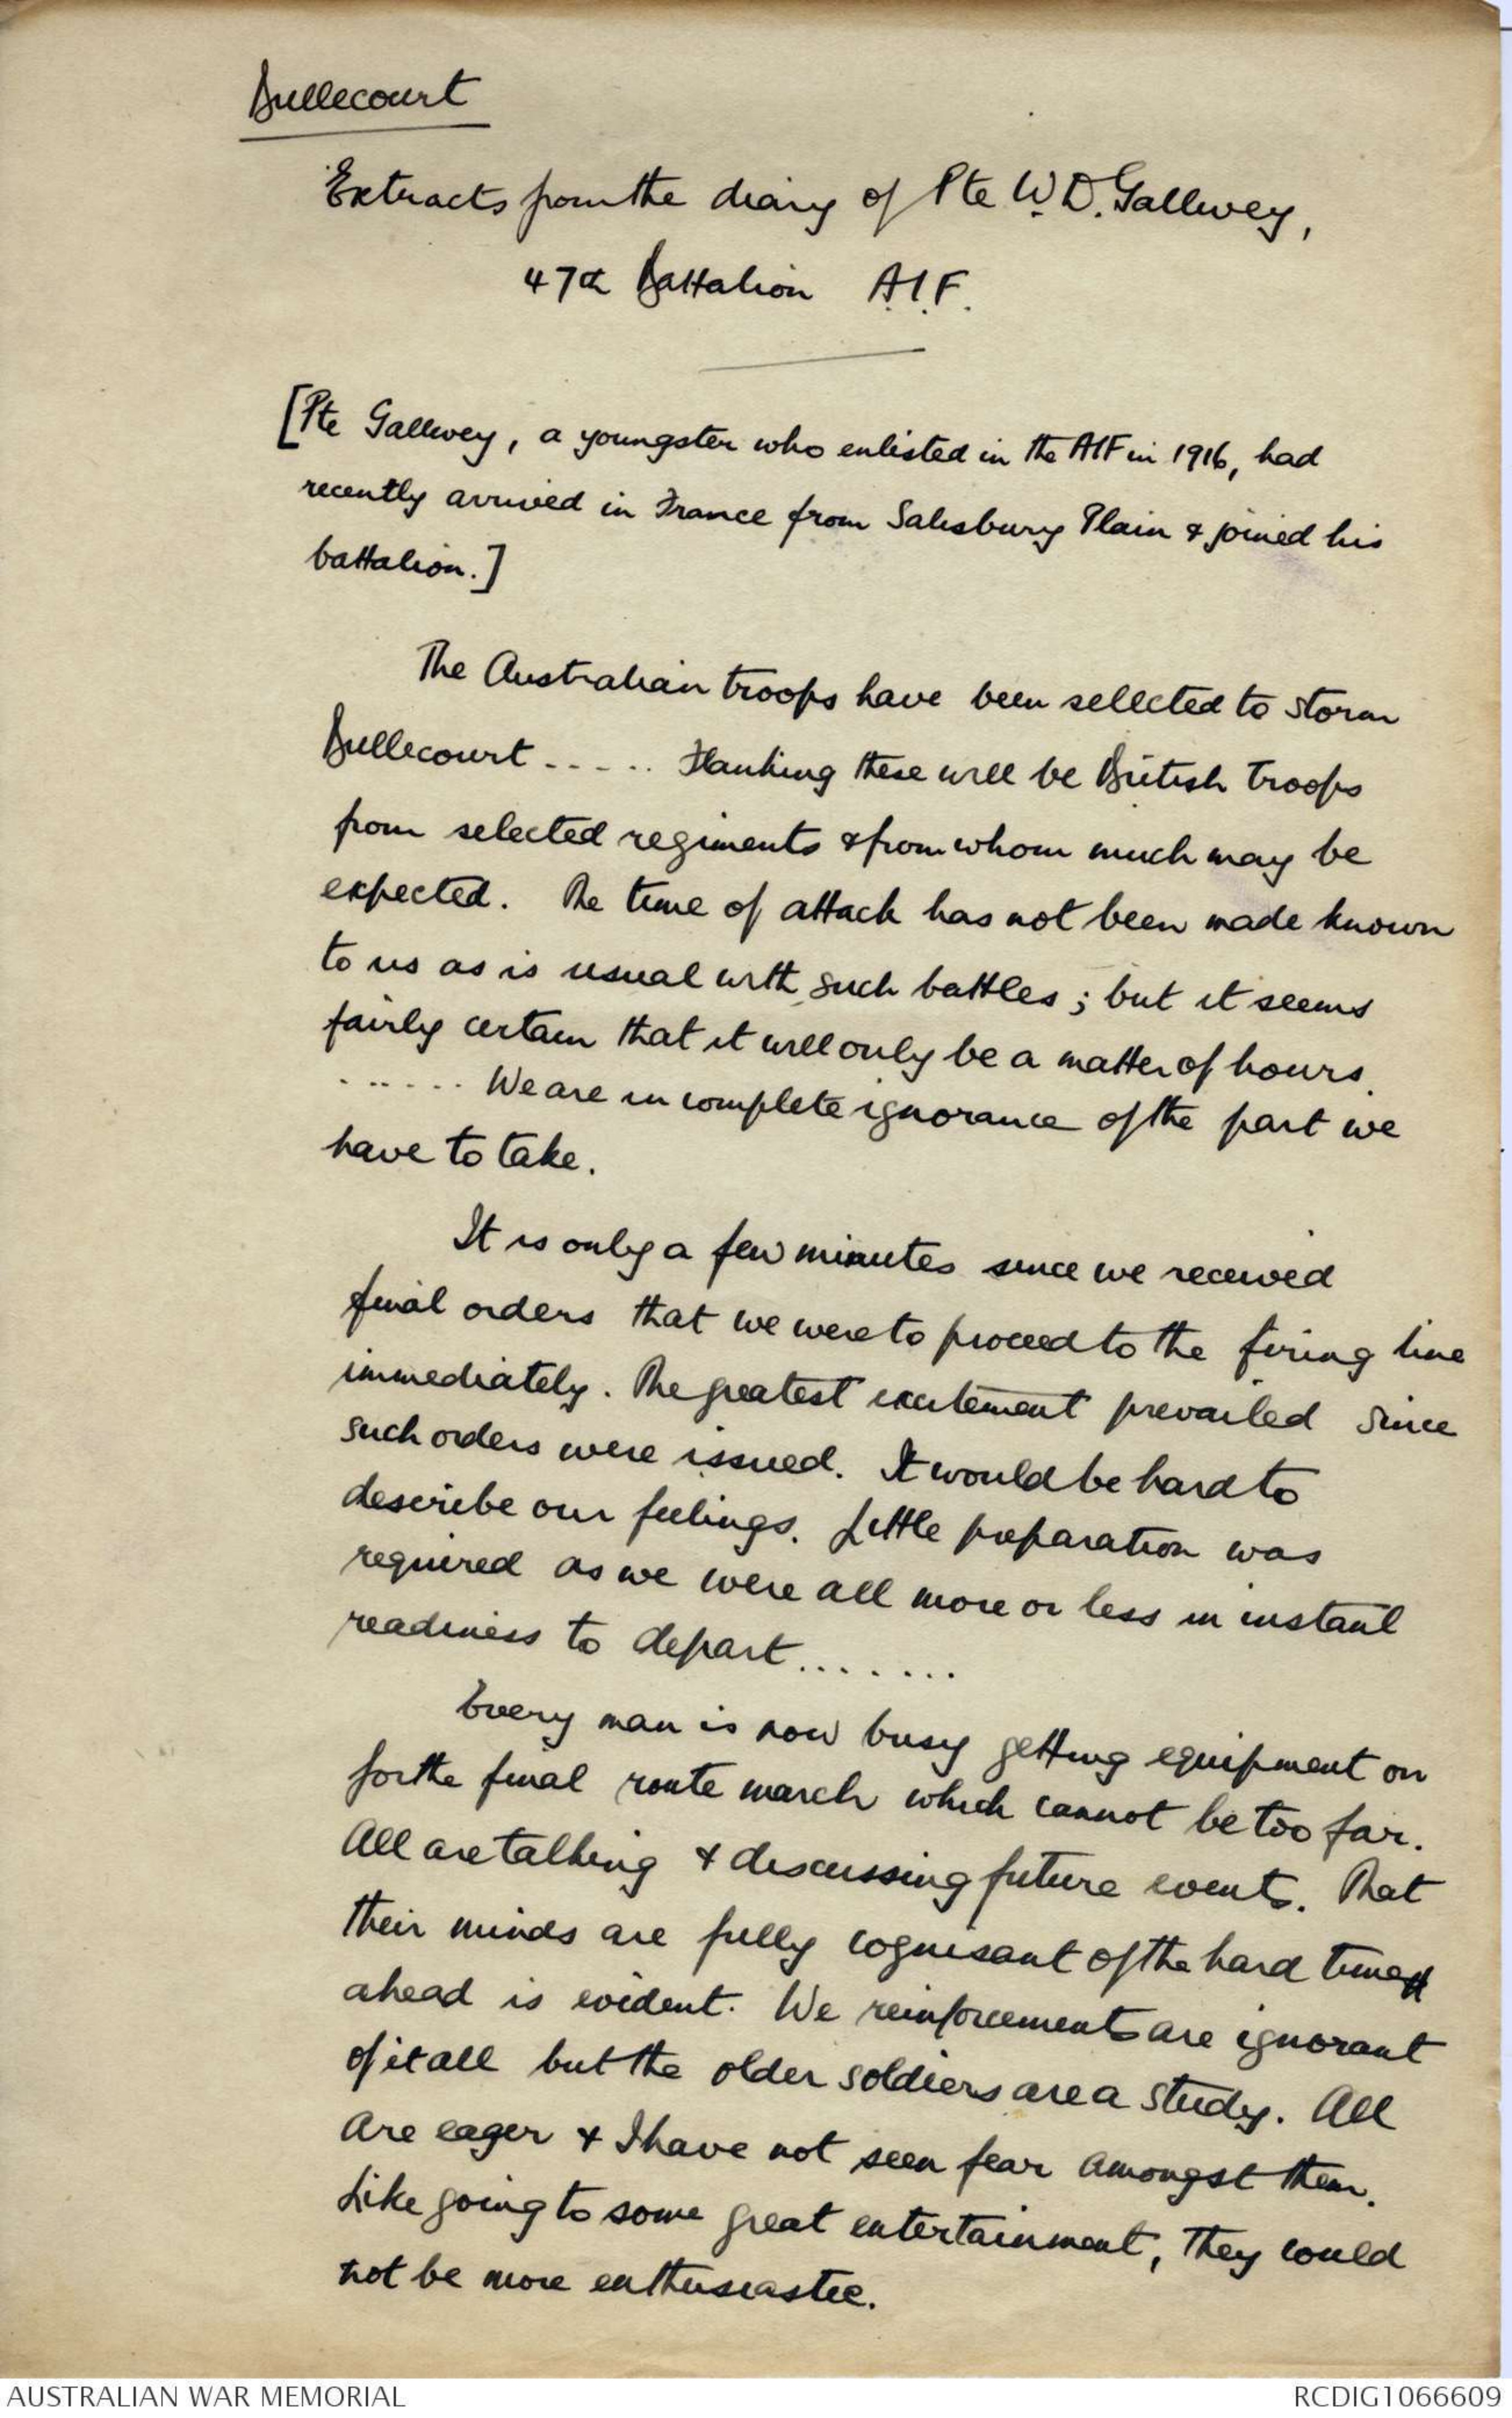 Bullecourt
Extracts from the diary of Pte W.D. Gallwey,
47th Battalion A.I.F.
[Pte Gallwey, a youngster who enlisted in the AIF in 1916, had
recently arrived in France from Salisbury Plain & joined his
battalion.]
The Australian troops have been selected to storm
Bullecourt ...... Flanking these will be British troops
from selected regiments & from whom much may be
expected. The time of attack has not been made known
to us as is usual with such battles; but it seems
fairly certain that it will only be a matter of hours.
...... We are in complete ignorance of the part we
have to take.
It is only a few minutes since we received
final orders that we were to proceed to the firing line
immediately. The greatest excitement prevailed since
such orders were issued. It would be hard to
describe our feelings. Little preparation was
required as we were all more or less in instant
readiness to depart........
Every man is now busy getting equipment on
for the final route march which cannot be too far.
All are talking & discussing future events. That
their minds are fully cognisant of the hard time
ahead is evident. We reinforcements are ignorant
of it all but the older soldiers are a study. All
are eager & I have not seen fear amongst them.
Like going to some great entertainment, they could
not be more enthusiastic.
AUSTRALIAN WAR MEMORIAL
RCDIG1066609